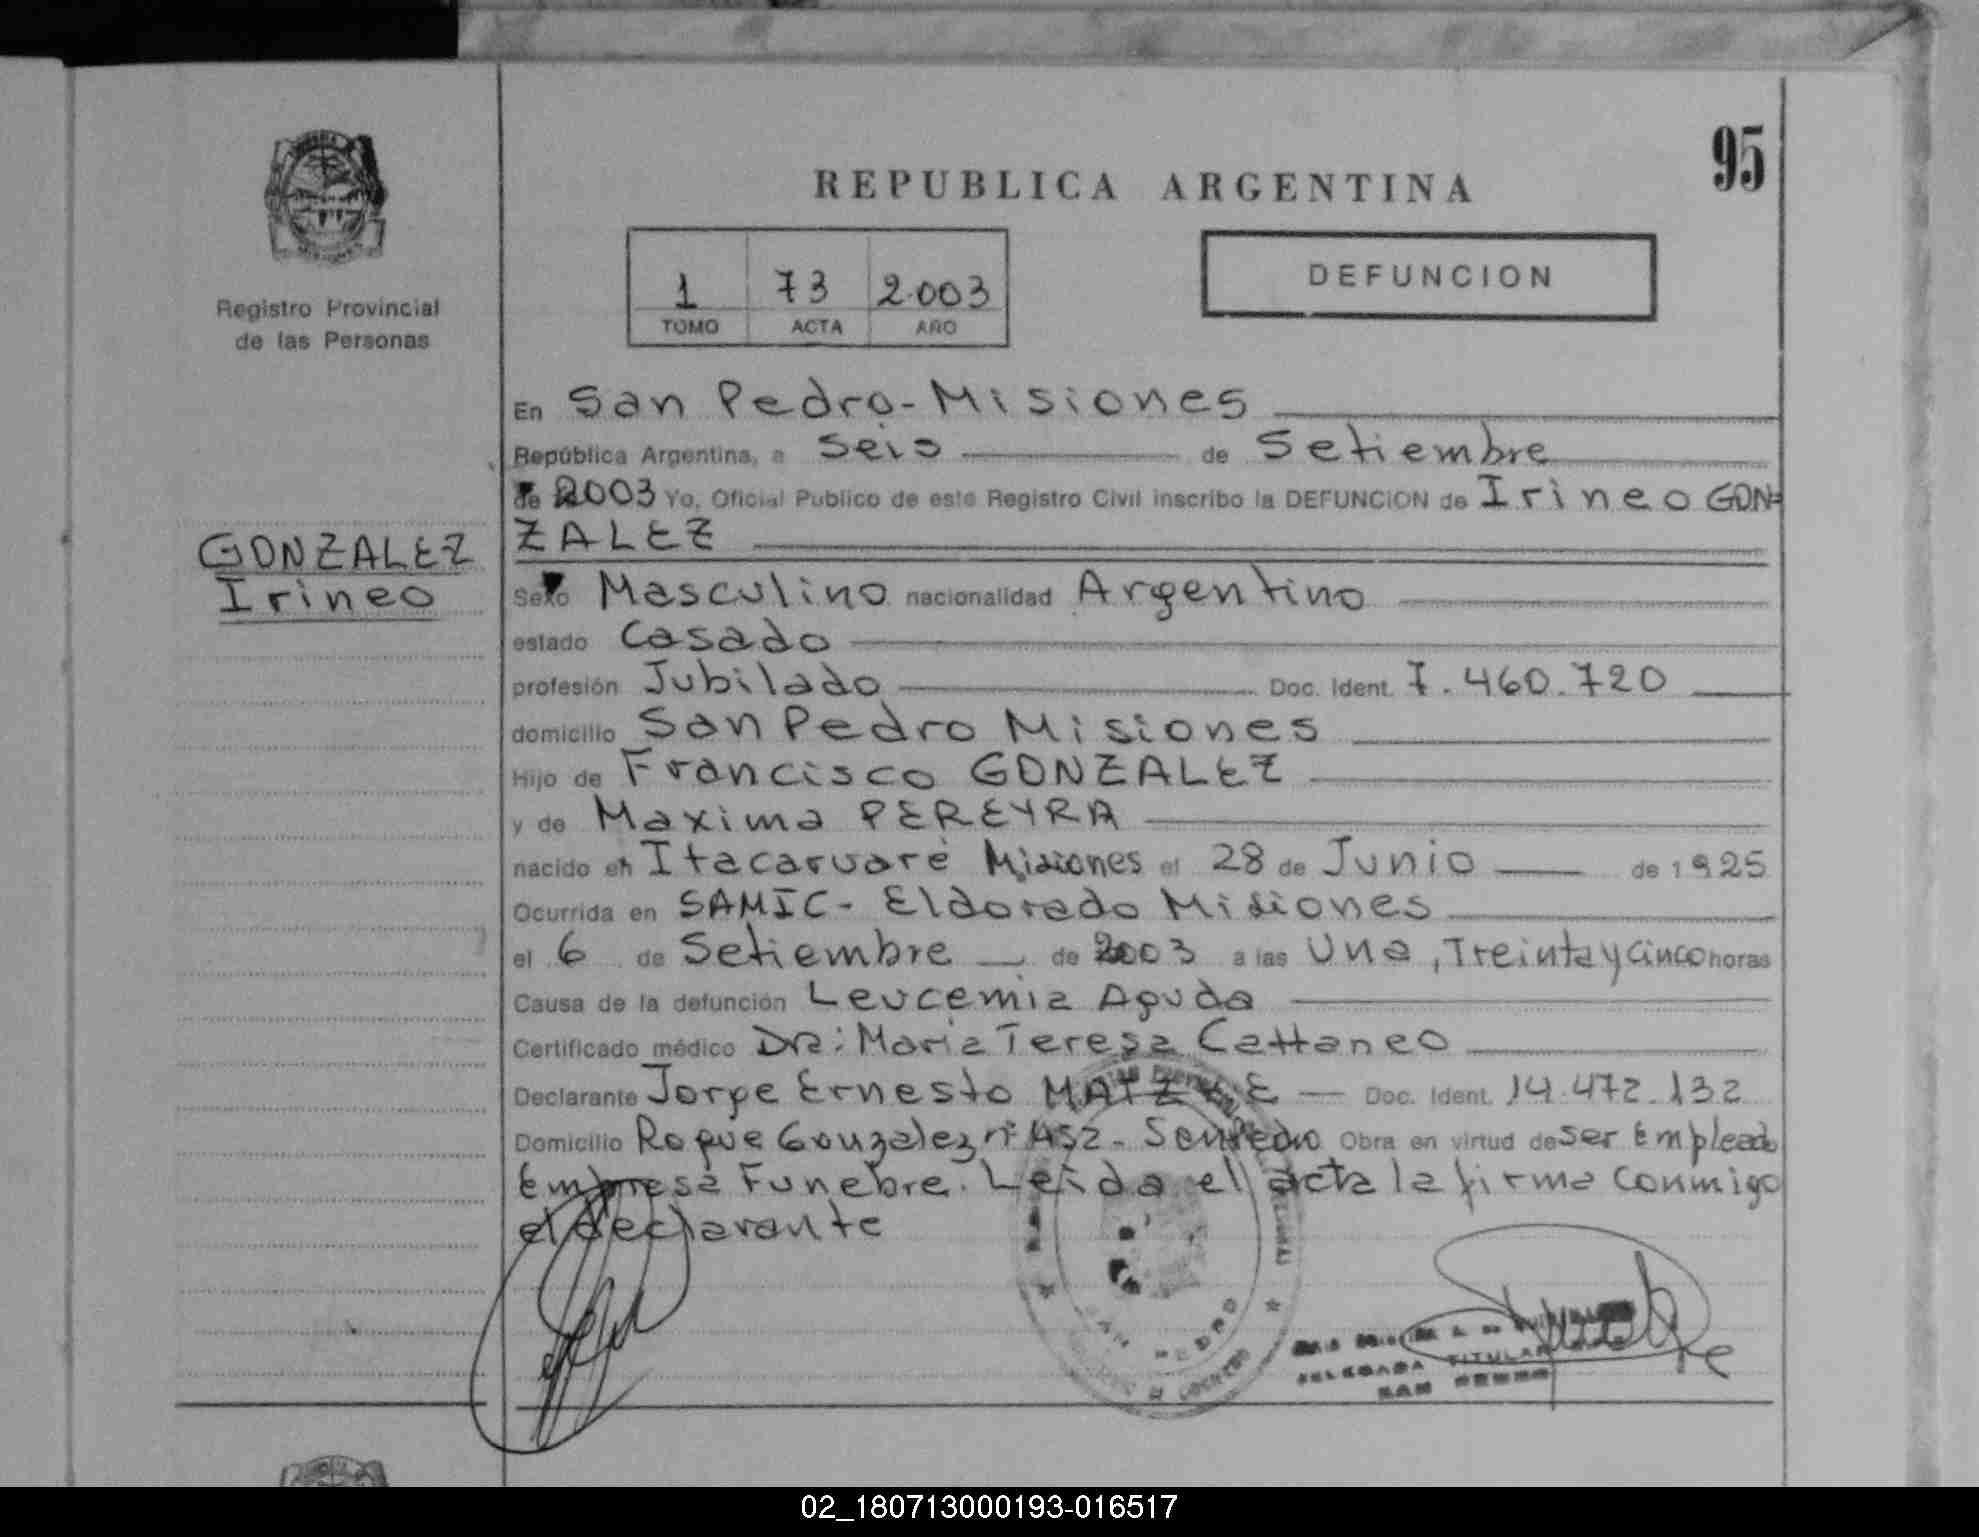 95
REPUBLICA ARGENTINA
1 73 2.003
TOMO ACTA AÑO
DEFUNCION
Registro Provincial
de las Personas
GONZALEZ
Irineo
En San Pedro - Misiones
República Argentina, a Seis de Setiembre
de 2003 Yo, Oficial Publico de este Registro Civil inscribo la DEFUNCION de Irineo GON=
ZALEZ
Sexo Masculino nacionalidad Argentino
estado Casado
profesión Jubilado Doc. Ident. 7.460.720
domicilio San Pedro Misiones
Hijo de Francisco GONZALEZ
y de Maxima PEREYRA
nacido en Itacaruaré Misiones el 28 de Junio de 1925
Ocurrida en SAMIC - Eldorado Misiones
el 6 de Setiembre de 2003 a las Una, Treinta y Cinco horas
Causa de la defunción Leucemia Aguda
Certificado médico Dra: Maria Teresa Cattaneo
Declarante Jorge Ernesto Doc. Ident. 14.472.132
Domicilio Roque Gonzalez nº 452 - San Pedro Obra en virtud de ser Empleado
Empresa Funebre. Leida el acta la firma conmigo
el declarante
SAN PEDRO
DELEGADA TITULAR
SAN PEDRO
02_180713000193-016517